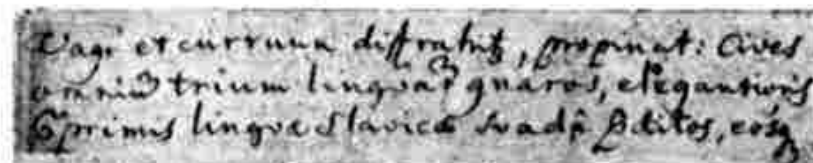 Vagi et curruum distrahit, propinat: Cives
omniū trium linguarꝫ gnaros, elegantioris
primis linguæ Slavicæ svadâ pditos, eosq